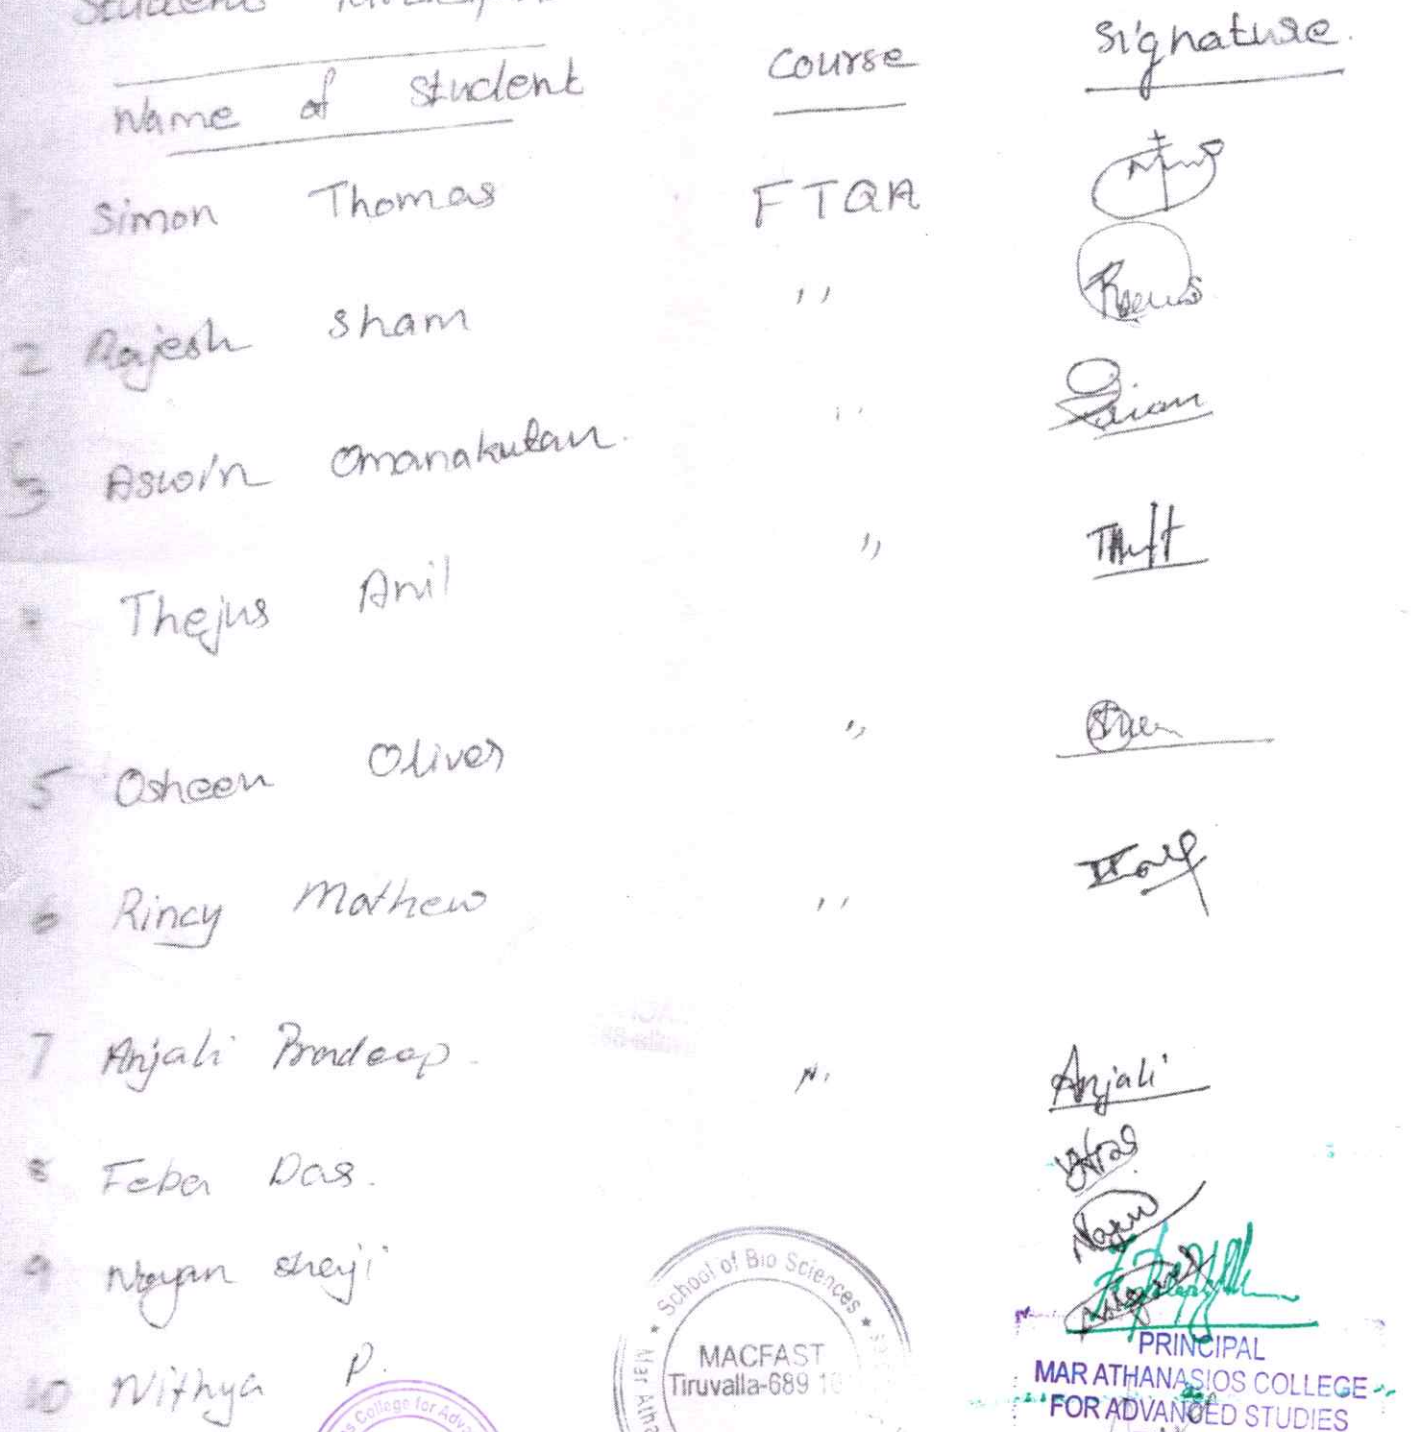 Student
Name of Student Course Signature.
Simon Thomas FTQA
2 Rajesh Sham ''
3 Aswin Omanakutan. ''
Thejus Anil ''
5 Osheen Oliver ''
6 Rincy Mathew ''
7 Anjali Pradeep. '' Anjali
8 Feba Das.
9 Nayan Sheji
10 Nithya P.
School of Bio Sciences
MACFAST
Tiruvalla-689 10
College for Adva
Mar Atha
PRINCIPAL
MAR ATHANASIOS COLLEGE
FOR ADVANCED STUDIES